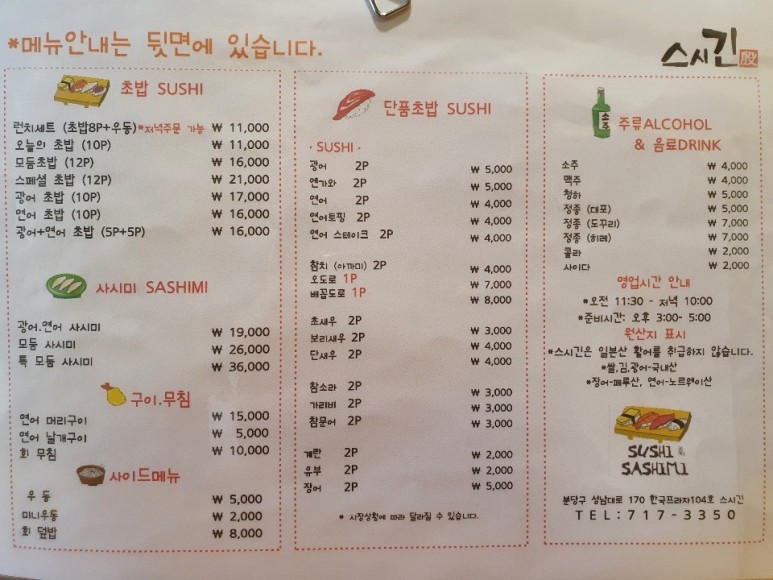 *메뉴안내는 뒷면에 있습니다.
스시긴
초밥 SUSHI
런치세트 (초밥8P+우동)*저녁주문 가능 ₩ 11,000
오늘의 초밥 (10P) ₩ 11,000
모둠초밥 (12P) ₩ 16,000
스페셜 초밥 (12P) ₩ 21,000
광어 초밥 (10P) ₩ 17,000
연어 초밥 (10P) ₩ 16,000
광어+연어 초밥 (5P+5P) ₩ 16,000
사시미 SASHIMI
광어.연어 사시미 ₩ 19,000
모둠 사시미 ₩ 26,000
특 모둠 사시미 ₩ 36,000
구이.무침
연어 머리구이 ₩ 15,000
연어 날개구이 ₩ 5,000
회 무침 ₩ 10,000
사이드메뉴
우동 ₩ 5,000
미니우동 ₩ 2,000
회 덮밥 ₩ 8,000
단품초밥 SUSHI
· SUSHI ·
광어 2P ₩ 5,000
엔가와 2P ₩ 5,000
연어 2P ₩ 4,000
연어토핑 2P ₩ 4,000
연어 스테이크 2P ₩ 4,000
참치 (아까미) 2P ₩ 4,000
오도로 1P ₩ 7,000
배꼽도로 1P ₩ 8,000
초새우 2P ₩ 3,000
보리새우 2P ₩ 4,000
단새우 2P ₩ 4,000
참소라 2P ₩ 3,000
가리비 2P ₩ 3,000
참문어 2P ₩ 3,000
계란 2P ₩ 2,000
유부 2P ₩ 2,000
장어 2P ₩ 5,000
* 시장상황에 따라 달라질 수 있습니다.
소주
주류ALCOHOL
& 음료DRINK
소주 ₩ 4,000
맥주 ₩ 4,000
청하 ₩ 5,000
정종 (대포) ₩ 5,000
정종 (도꾸리) ₩ 7,000
정종 (히레) ₩ 7,000
콜라 ₩ 2,000
사이다 ₩ 2,000
영업시간 안내
*오전 11:30 - 저녁 10:00
*준비시간: 오후 3:00- 5:00
원산지 표시
*스시긴은 일본산 활어를 취급하지 않습니다.
*쌀,김,광어-국내산
*장어-페루산, 연어-노르웨이산
SUSHI &
SASHIMI
분당구 성남대로 170 한국프라자104호 스시긴
TEL:717-3350